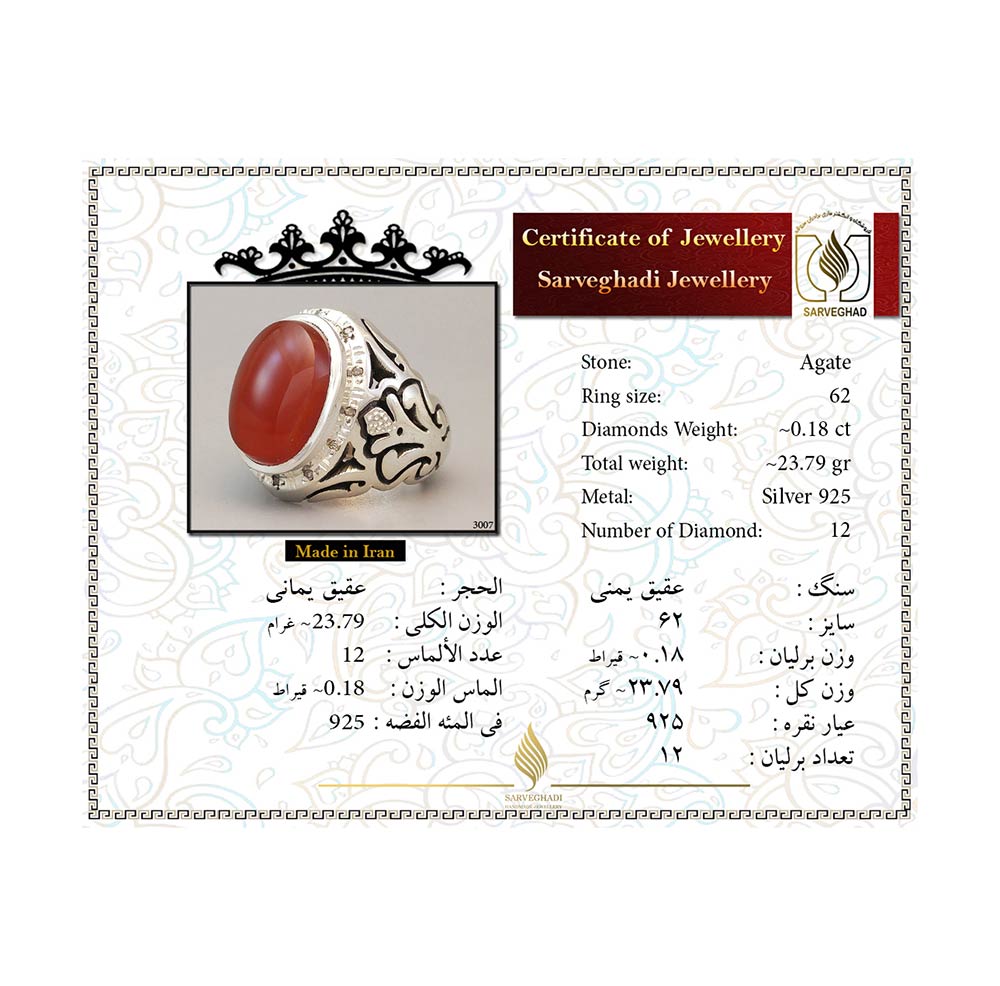 Certificate of Jewellery
Sarveghadi Jewellery
SARVEGHAD
Stone: Agate
Ring size: 62
Diamonds Weight: ~0.18 ct
Total weight: ~23.79 gr
Metal: Silver 925
Number of Diamond: 12
3007
Made in Iran
سنگ : عقیق یمنی
سایز : ۶۲
وزن برلیان : ~۰.۱۸ قیراط
وزن کل : ~۲۳.۷۹ گرم
عیار نقره : ۹۲۵
تعداد برلیان : ۱۲
الحجر : عقیق یمانی
الوزن الکلی : ~23.79 غرام
عدد الألماس : 12
الماس الوزن : ~0.18 قیراط
فی المئه الفضه : 925
SARVEGHADI
HANDMADE JEWELLERY